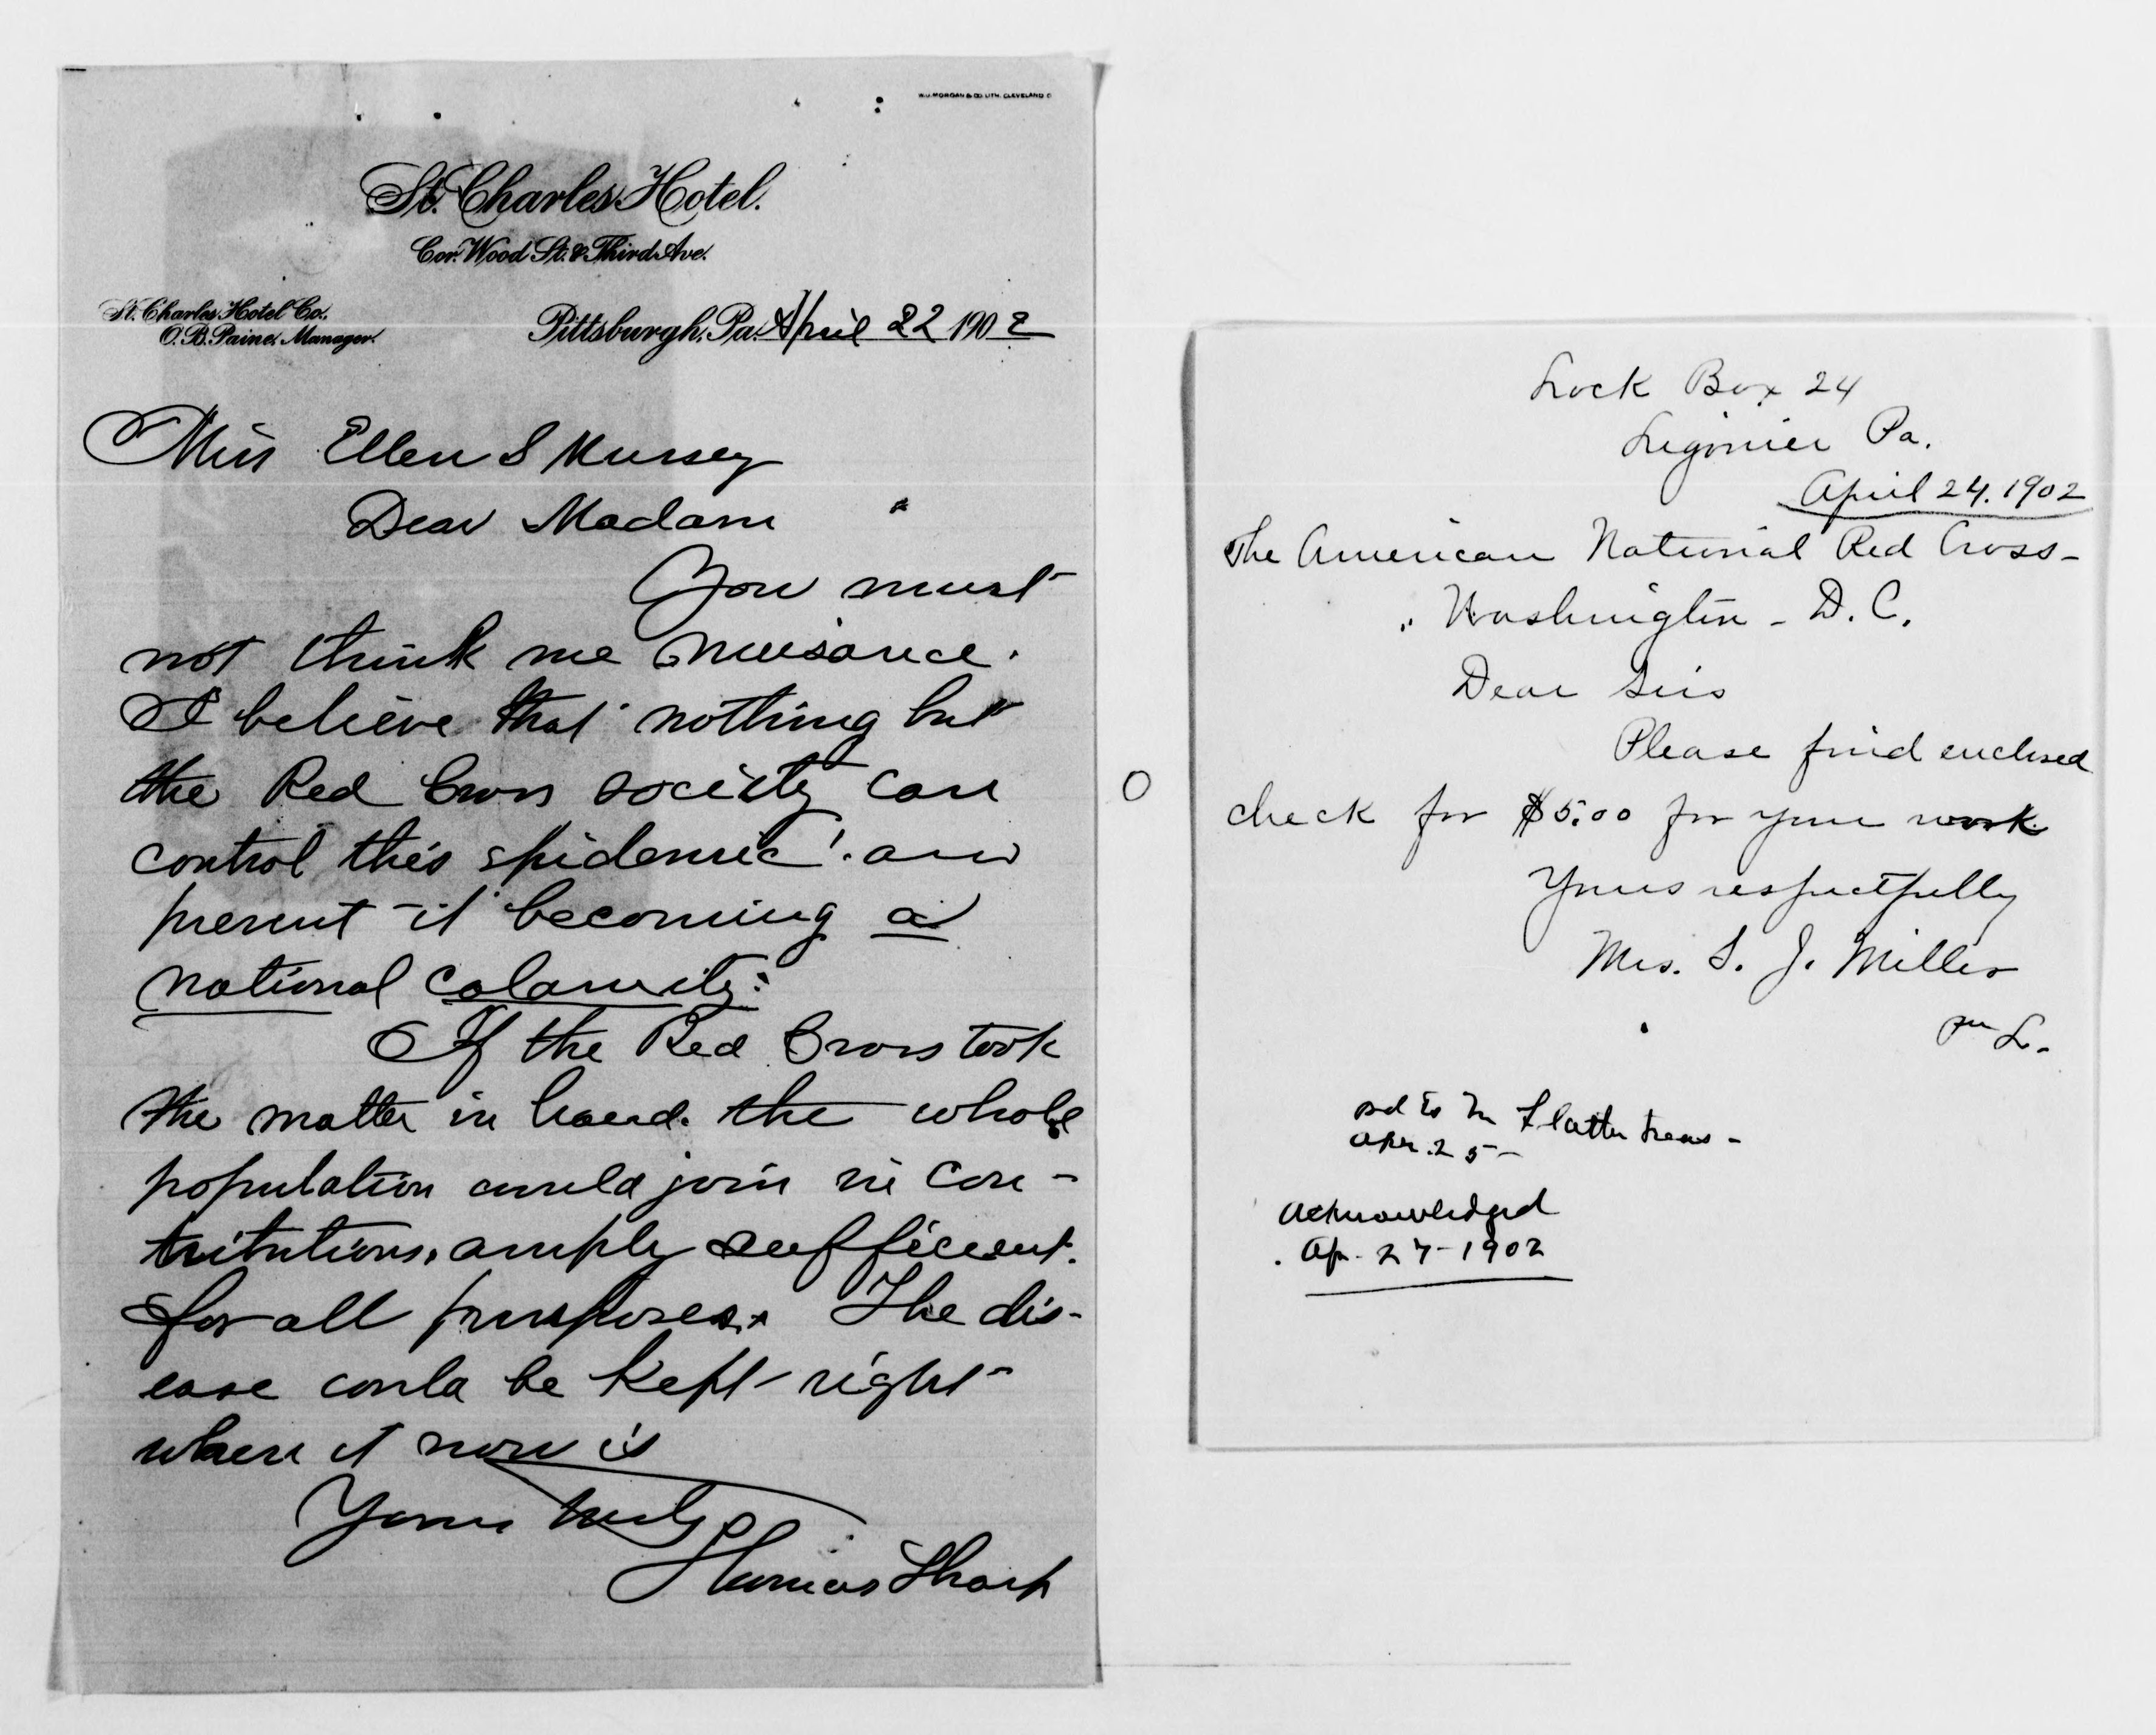 W.J. MORGAN & CO. LITH. CLEVELAND O
St. Charles Hotel.
Cor. Wood St. & Third Ave.
St. Charles Hotel Co.
O. B. Paine, Manager.
Pittsburgh, Pa. April 22 1902
Miss Ellen S Mussey
Dear Madam
You must
not think me nuisance.
I believe that nothing but
the Red Cross society can
control this epidemic! and
prevent it becoming a
national calamity:
If the Red Cross took
the matter in hand. the whole
population could join in con-
tritutions, amply sufficient.
for all purposes. The dis-
ease could be kept right
where it now is
Yours truly
Thomas Sharp
Lock Box 24
Ligonier Pa.
April 24. 1902
The American National Red Cross-
Washington - D. C.
Dear Sirs
Please find enclosed
check for $5.00 for your work
Yours respectfully
Mrs. S. J. Miller
per L.
Flather treas -
Apr. 25 -
Acknowledged
Ap. 27 - 1902